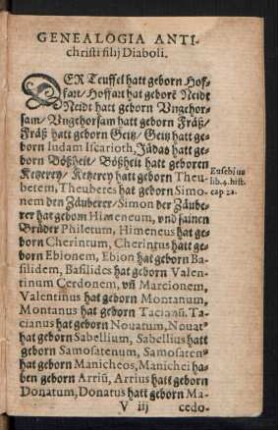 GENEALOGIA ANTI-
christi filij Diaboli.
DER Teuffel hatt geborn Hof-
fart/ Hoffart hat geborē Neidt
Neidt hatt geborn Vngehor-
sam/ Vngehorsam hatt geborn Fräß/
Fräß hatt geborn Geitz/ Geitz hatt ge-
born Iudam Iscarioth, Jüdas hatt ge-
born Bößheit/ Bößheit hatt geboren
Ketzerey/ Ketzerey hatt geborn Theu-
betem, Theubetes hat geborn Simo-
nem den Zäuberer/ Simon der Zäube-
rer hat geborn Himeneum, vnd sainen
Brüder Philetum, Himeneus hat ge-
born Cherintum, Cherintus hatt ge-
born Ebionem, Ebion hat geborn Ba-
silidem, Basilides hat geborn Valen-
tinum Cerdonem, vñ Marcionem,
Valentinus hat geborn Montanum,
Montanus hat geborn Tacianū. Ta-
cianus hat geborn Nouatum, Nouatꝰ
hat geborn Sabellium, Sabellius hatt
geborn Samosatenum, Samosatenꝰ
hat geborn Manicheos, Manichei ha-
ben geborn Arriū, Arrius hatt geborn
Donatum, Donatus hatt geborn Ma-
V iij cedo-
Eusebius
lib. 4. hist.
cap 22.